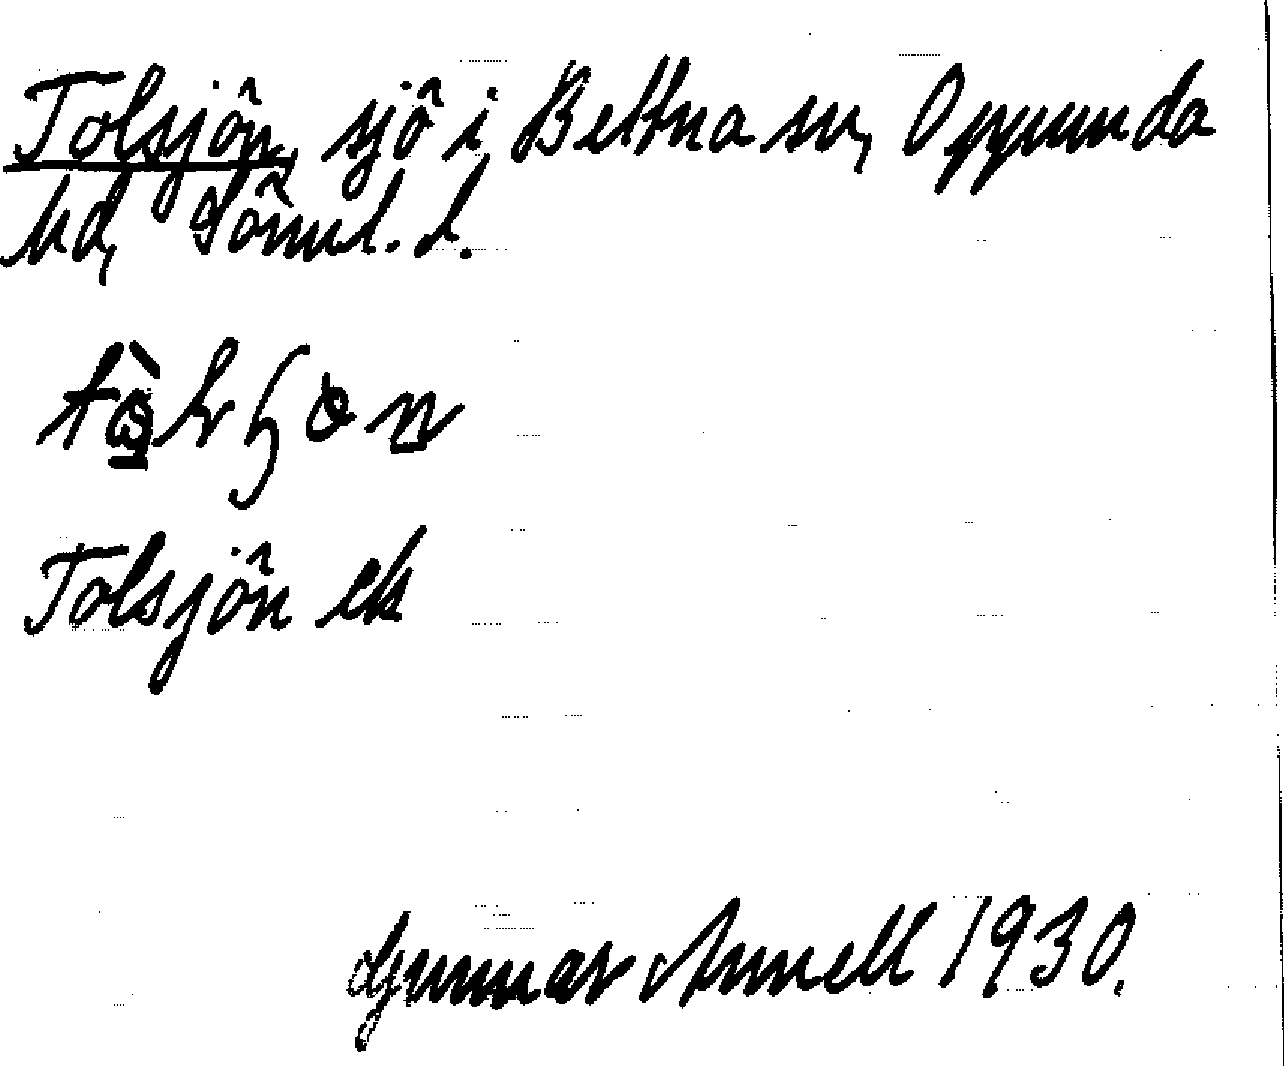 Tolsjön, sjö i Bettna sn, Oppunda
hd, Sörml. l.
Tolsjön ek
Gunnar Annell 1930.